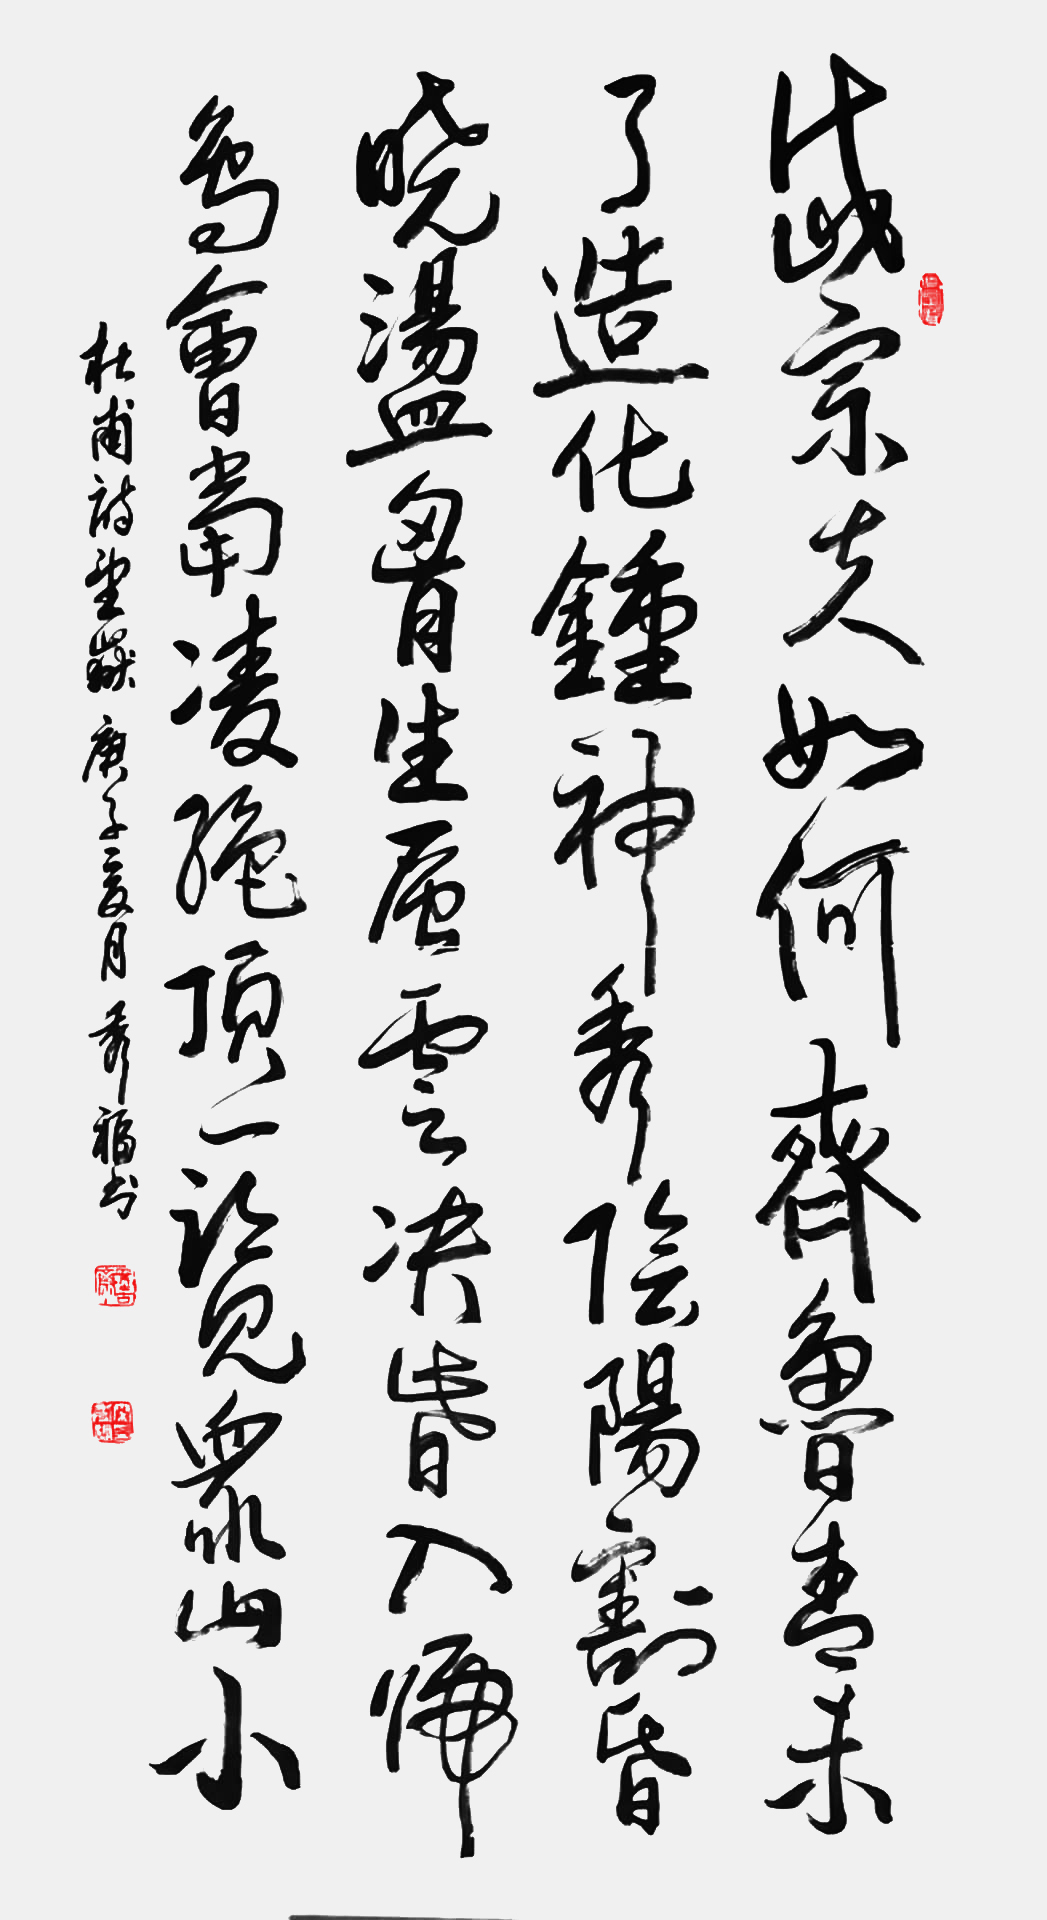 岱宗夫如何齊魯青未
了造化鍾神秀陰陽割昏
曉盪胷生层雲决眥入歸
鳥會當凌絕頂一覽眾山小
杜甫詩望嶽 庚子夏月 秀福书